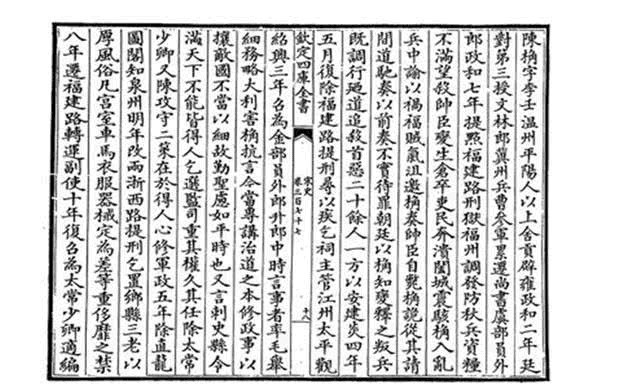 陳桷字季壬温州平陽人以上舍貢辟雍政和二年廷
對第三授文林郎冀州兵曹參軍累遷尚書虞部員外
郎政和七年提㸃福建路刑獄福州調發防秋兵資糧
不滿望殺帥臣變生倉卒吏民奔潰闔城震駭桷入亂
兵中諭以禍福賊氣沮邀桷奏帥臣自斃桷詭從其請
間道馳奏以前奏不實待罪朝廷以桷知變釋之叛兵
既調行廼道追殺首惡二十餘人一方以安建炎四年
五月復除福建路提刑尋以疾乞祠主管江州太平觀
欽定四庫全書
宋史
卷三百七十七
十八
紹興三年召為金部員外郎升郎中時言事者率毛舉
細務略大利害桷抗言今當專講治道之本修政事以
攘敵國不當以細故勤聖慮如平時也又言刺史縣令
滿天下不能皆得人乞選監司重其權久其任除太常
少卿又陳攻守二策在於得人心修軍政五年除直龍
圖閣知泉州明年改兩浙西路提刑乞置鄉縣三老以
厚風俗凡宮室車馬衣服器械定為差等重侈靡之禁
八年遷福建路轉運副使十年復召為太常少卿適編